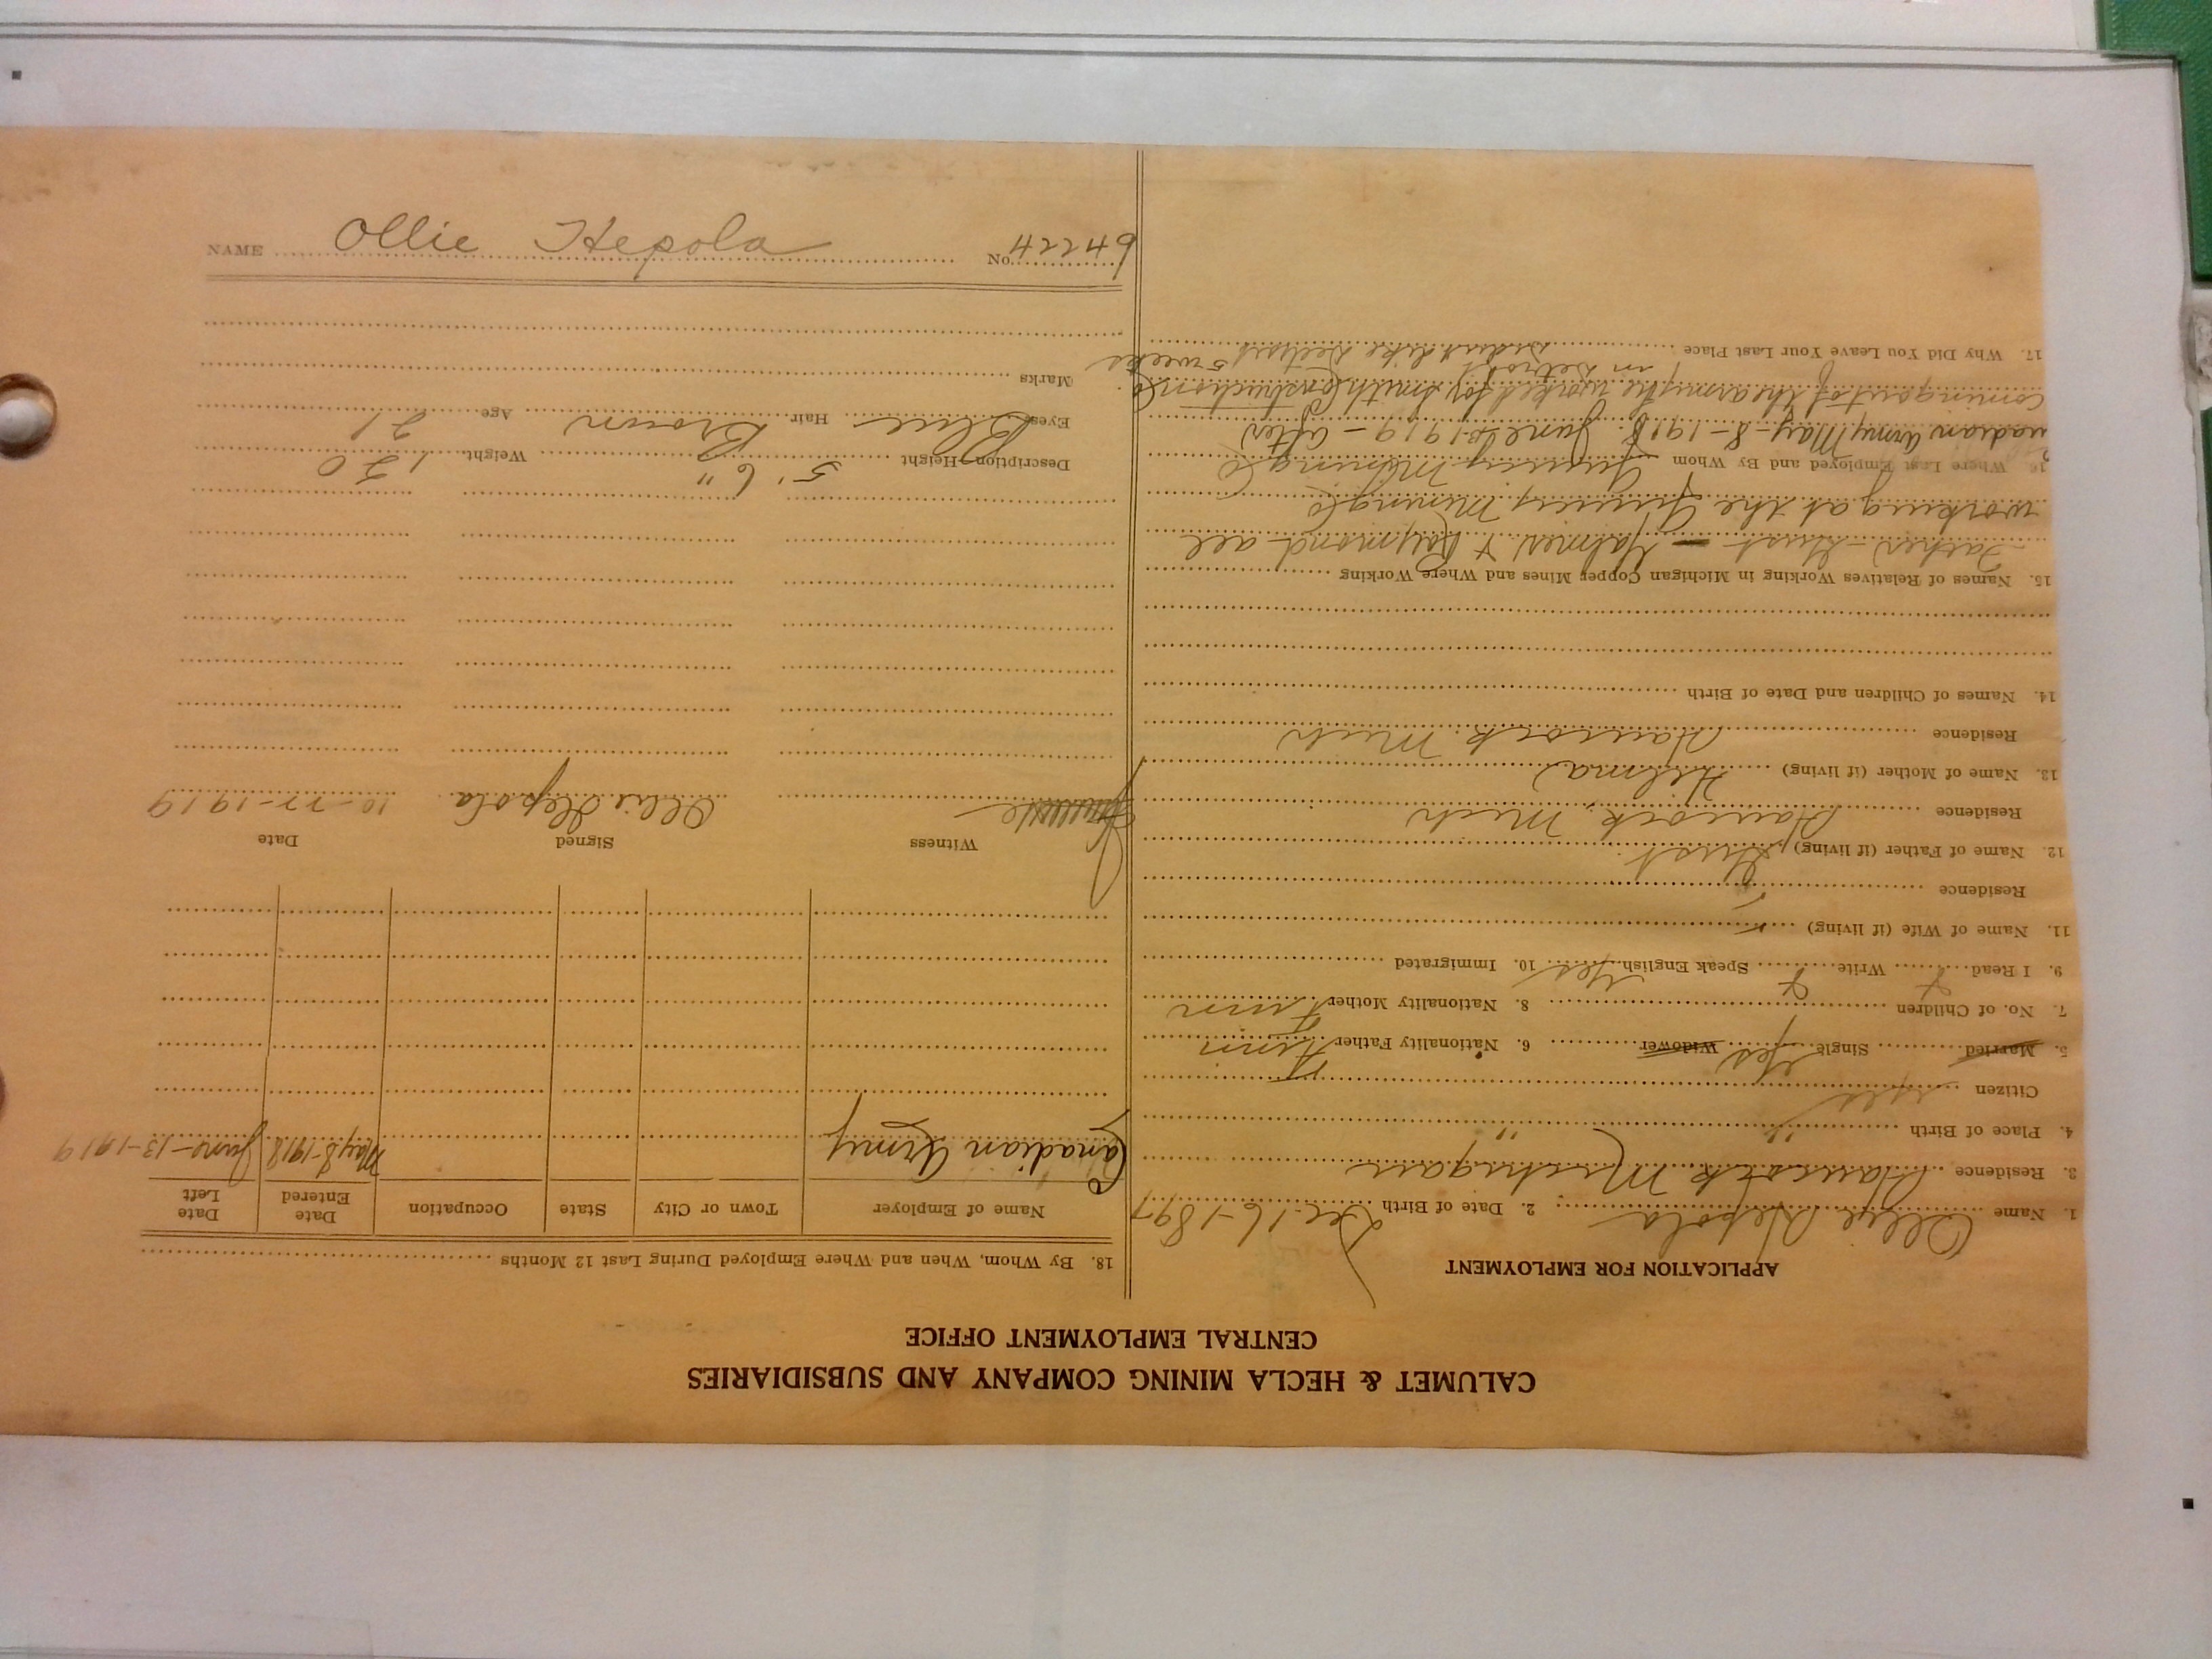 CALUMET & HECLA MINING COMPANY AND SUBSIDIARIES
CENTRAL EMPLOYMENT OFFICE
APPLICATION FOR EMPLOYMENT
1. Name Ollie Hepola 2. Date of Birth Dec. 16-1897
3. Residence Hancock Michigan
4. Place of Birth " "
Citizen Yes
5. Married Single Yes Widower 6. Nationality Father Finn
7. No. of Children 8. Nationality Mother Finn
9. I Read Write Speak English Yes 10. Immigrated
11. Name of Wife (if living) -
Residence -
12. Name of Father (if living) Gust
Residence Hancock, Mich
13. Name of Mother (if living) Hilma
Residence Hancock Mich
14. Names of Children and Date of Birth
15. Names of Relatives Working in Michigan Copper Mines and Where Working
Father-Gust - Halmer & Raymond all
working at the Quincy Mining Co
16. Where Last Employed and By Whom Quincy Mining Co
nadian Army May-8-1918. June 1919-after
coming out of the army he worked for Smith Construction Co
in Detroit 5 weeks
17. Why Did You Leave Your Last Place Didnt like Detroit
18. By Whom, When and Where Employed During Last 12 Months
Name of Employer Town or City State Occupation Date Entered Date Left
Canadian Army May 8-1918 June-13-1919
Witness Signed Date
Ollie Hepola 10-27-1919
Description-Height 5' 6" Weight 150
Eyes Blue Hair Brown Age 21
Marks
NAME Ollie Hepola No. 42246